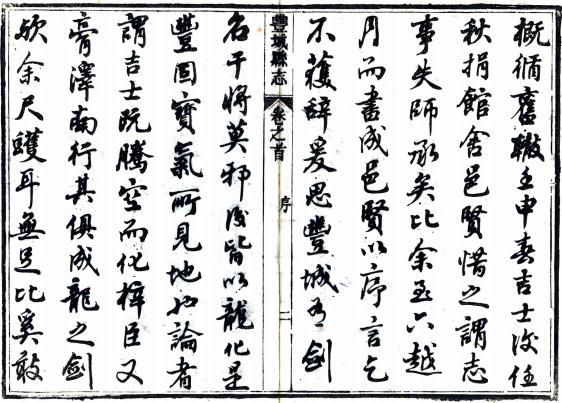 概循舊轍壬申春吉士任
秋捐館舍邑賢惜之謂志
事失師承矣比余至六越
月而書成邑賢以序言乞
不獲辭爰思豐城有劍
豐城縣志 卷之首 序 二
名干將莫邪後皆以龍化是
豐固寶氣所見地也論者
謂吉士既騰空而化梓臣又
膏澤南行其俱成龍之劍
歟余尺蠖耳無足比奚敢